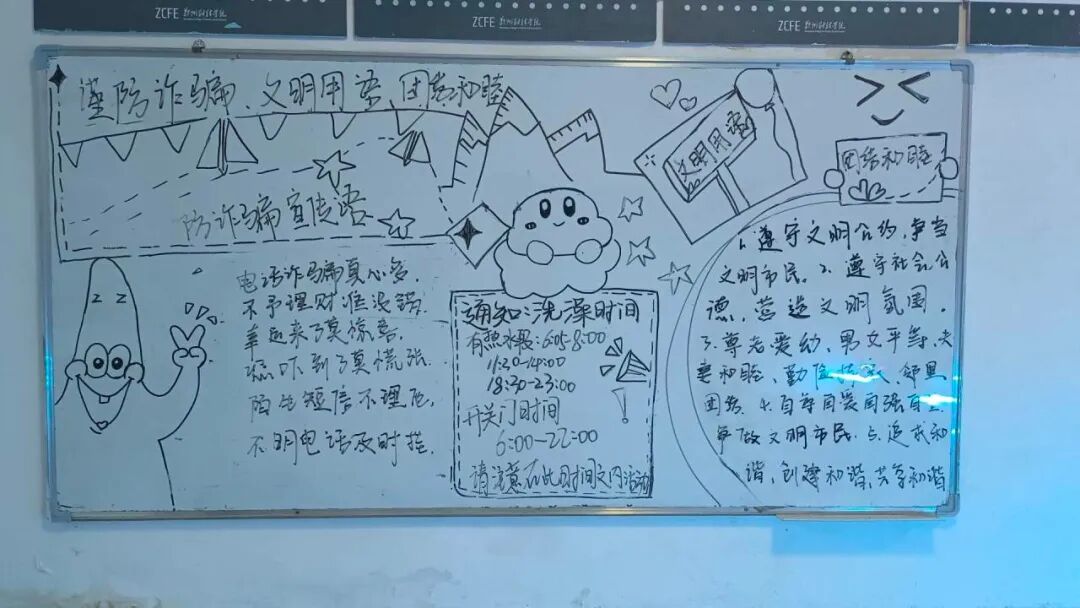 ZCFE 郑州财经学院
ZCFE 郑州财经学院
谨防诈骗、文明用语、团结和睦
防诈骗宣传语
电话诈骗真心多,
不予理财准没错,
幸运来了莫惊喜,
惊吓到了莫慌张,
陌生短信不理厄,
不明电话及时挂.
通知:洗澡时间
有热水器:6:05-8:00
11:20-14:00
18:30-23:00
开关门时间
6:00-22:00
请注意在此时间之内活动
文明用语
团结和睦
1、遵守文明公约,争当
文明市民。2、遵守社会公
德,营造文明氛围。
3.尊老爱幼,男女平等,夫
妻和睦、勤俭持家、邻里
团结 4.自尊自爱自强自
争做文明市民.5.追求和
谐,创建和谐,共享和谐